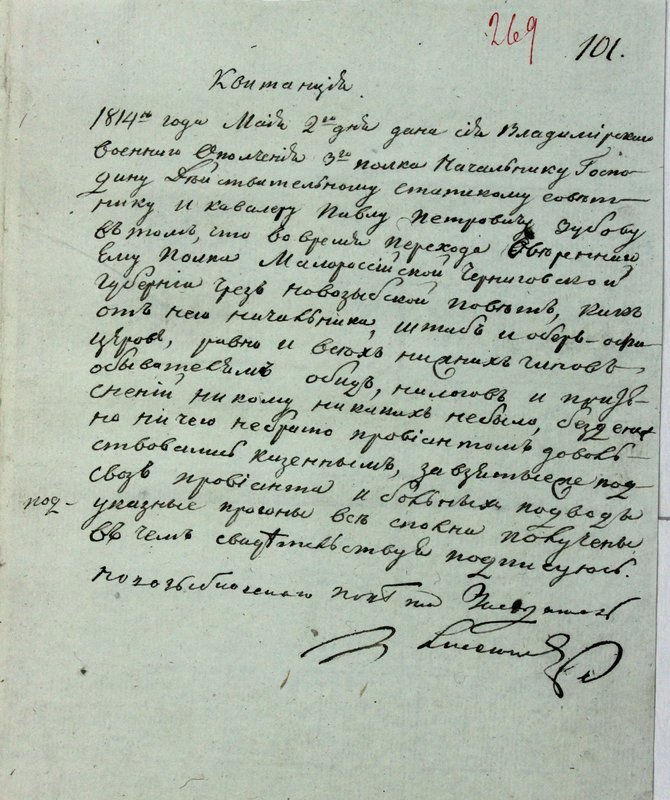 269
101.
Квитанция
1814го года Маія 2го дня дана сія Владимірскаго
военнаго Ополченія 3го полка Начальнику Госпо-
дину Действительному статскому совет-
нику и кавалеру Павлу Петровичу Зубову
в томъ, что во время перехода вверенного
Ему Полка Малороссійской Черниговской
Губерніи чрезъ Новозыбской поветъ, какъ
отъ него начальника, штабъ и оберъ-офи-
церовъ, равно и всехъ нижнихъ чиновъ,
обывателямъ обидъ, налоговъ и притес-
неній никому никакихъ небыло, безденежно
но ничего небрато провіантомъ доволь-
ствовались казеннымъ, за взятые подъ
свозъ провіанта и больныхъ подводы
под-
указные прогоны все сполна получены
в чемъ свидетельствуя подписуюсь.
Новозыбковского